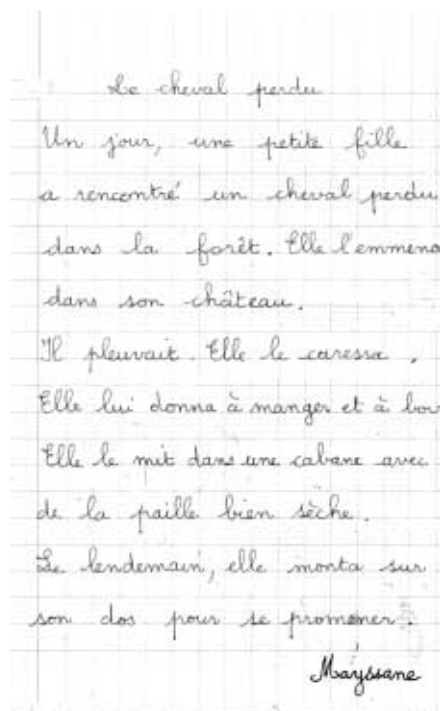 Le cheval perdu
Un jour, une petite fille
a rencontré un cheval perdu
dans la forêt. Elle l'emmena
dans son château.
Il pleuvait. Elle le caressa.
Elle lui donna à manger et à boi
Elle le mit dans une cabane avec
de la paille bien sèche.
Le lendemain, elle monta sur
son dos pour se promener.
Mayssane